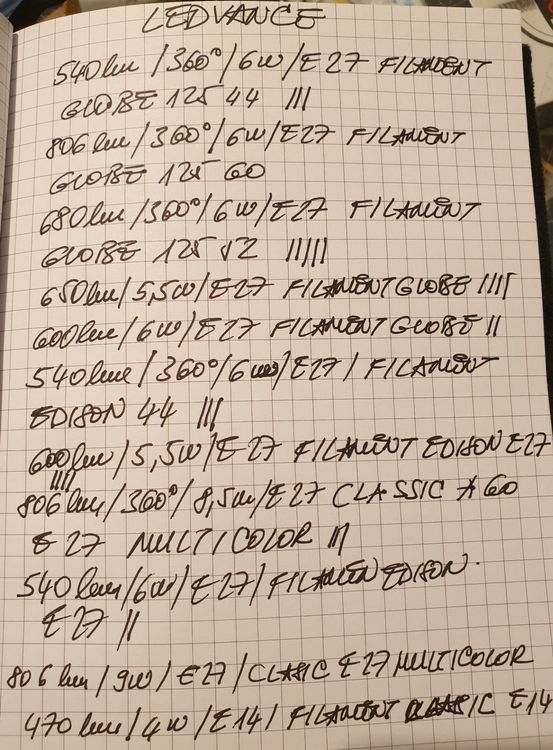 LEDVANCE
540lm/360°/6W/E27 FILAMENT
GLOBE 125 44 |||
806lm/360°/6W/E27 FILAMENT
GLOBE 125 60
680lm/360°/6W/E27 FILAMENT
GLOBE 125 52 |||||
650lm/5,5W/E27 FILAMENT GLOBE ||||
600lm/6W/E27 FILAMENT GLOBE ||
540lm/360°/6W/E27/FILAMENT
EDISON 44 |||
600lm/5,5W/E27 FILAMENT EDISON E27
||||
806lm/360°/8,5W/E27 CLASSIC A 60
E27 MULTICOLOR |||
540lm/6W/E27/FILAMEN EDISON.
E27 ||
806lm/9W/E27/CLASIC E27 MULTICOLOR
470lm/4W/E14/FILAMENT CLASIC E14